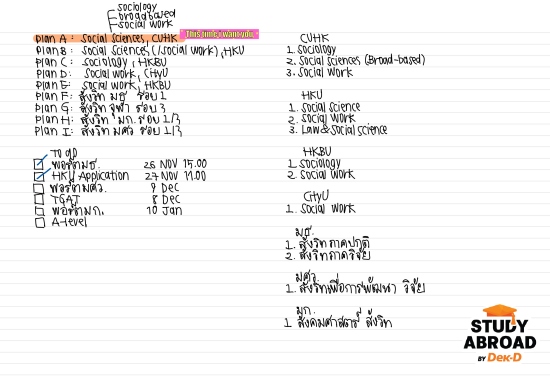 sociology
broad based
social work
Plan A : Social Sciences, CUHK This time, I want you.
Plan B : Social Sciences (/social work), HKU
Plan C : Sociology, HKBU
Plan D : Social work, CityU
Plan E : Social work, HKBU
Plan F : สังวิท มธ รอบ 1
Plan G : สังวิท จุฬา รอบ 3
Plan H : สังวิท มก. รอบ 1/3
Plan I : สังวิท มศว รอบ 1/3
To do
พอร์ตมธ. 26 NOV 15.00
HKU Application 27 NOV 11.00
พอร์ตมศว. 9 Dec
TGAT 8 Dec
พอร์ตมก. 10 Jan
A-level
CUHK
1. Sociology
2. Social sciences (Broad-based)
3. Social Work
HKU
1. Social Science
2. Social Work
3. Law & Social science
HKBU
1. Sociology
2. Social Work
CityU
1. Social Work
มธ.
1. สังวิทภาคปกติ
2. สังวิทภาควิจัย
มศว.
1. สังวิทเพื่อการพัฒนา วิจัย
มก.
1 สังคมศาสตร์ สังวิท
STUDY
ABROAD
BY DEK-D